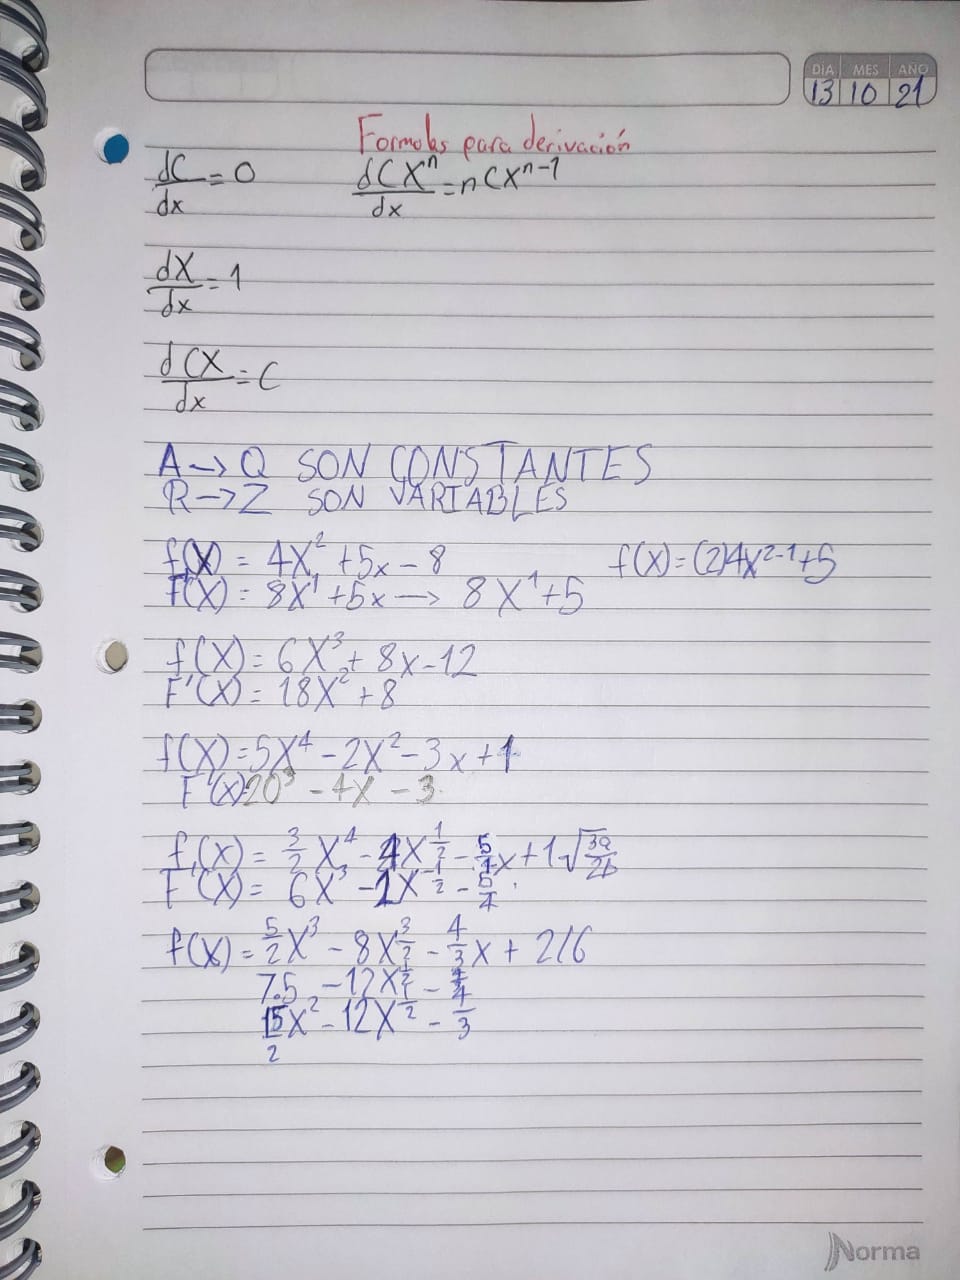 DÍA MES AÑO
13 10 21
Formolas para derivación
dC/dx = 0 dCX^n/dx = nCX^n-1
dX/dx = 1
dCX/dx = C
A → Q SON CONSTANTES
R → Z SON VARIABLES
f(X) = 4X² + 5x - 8 f(X) = (2)4X^2-1 + 5
F'(X) = 8X¹ + 5x → 8X¹ + 5
f(X) = 6X³ + 8x - 12
F'(X) = 18X² + 8
f(X) = 5X⁴ - 2X² - 3x + 1
F'(X) 20³ - 4X - 3
f(X) = 3/2 X⁴ - 4X^1/2 - 5/4 x + 1√
F'(X) = 6X³ - 2X^-1/2 - 5/4
f(X) = 5/2 X³ - 8X^3/2 - 4/3 x + 216
7.5 - 12X^1/2 -
15/2 X² - 12X^1/2 - 4/3
Norma